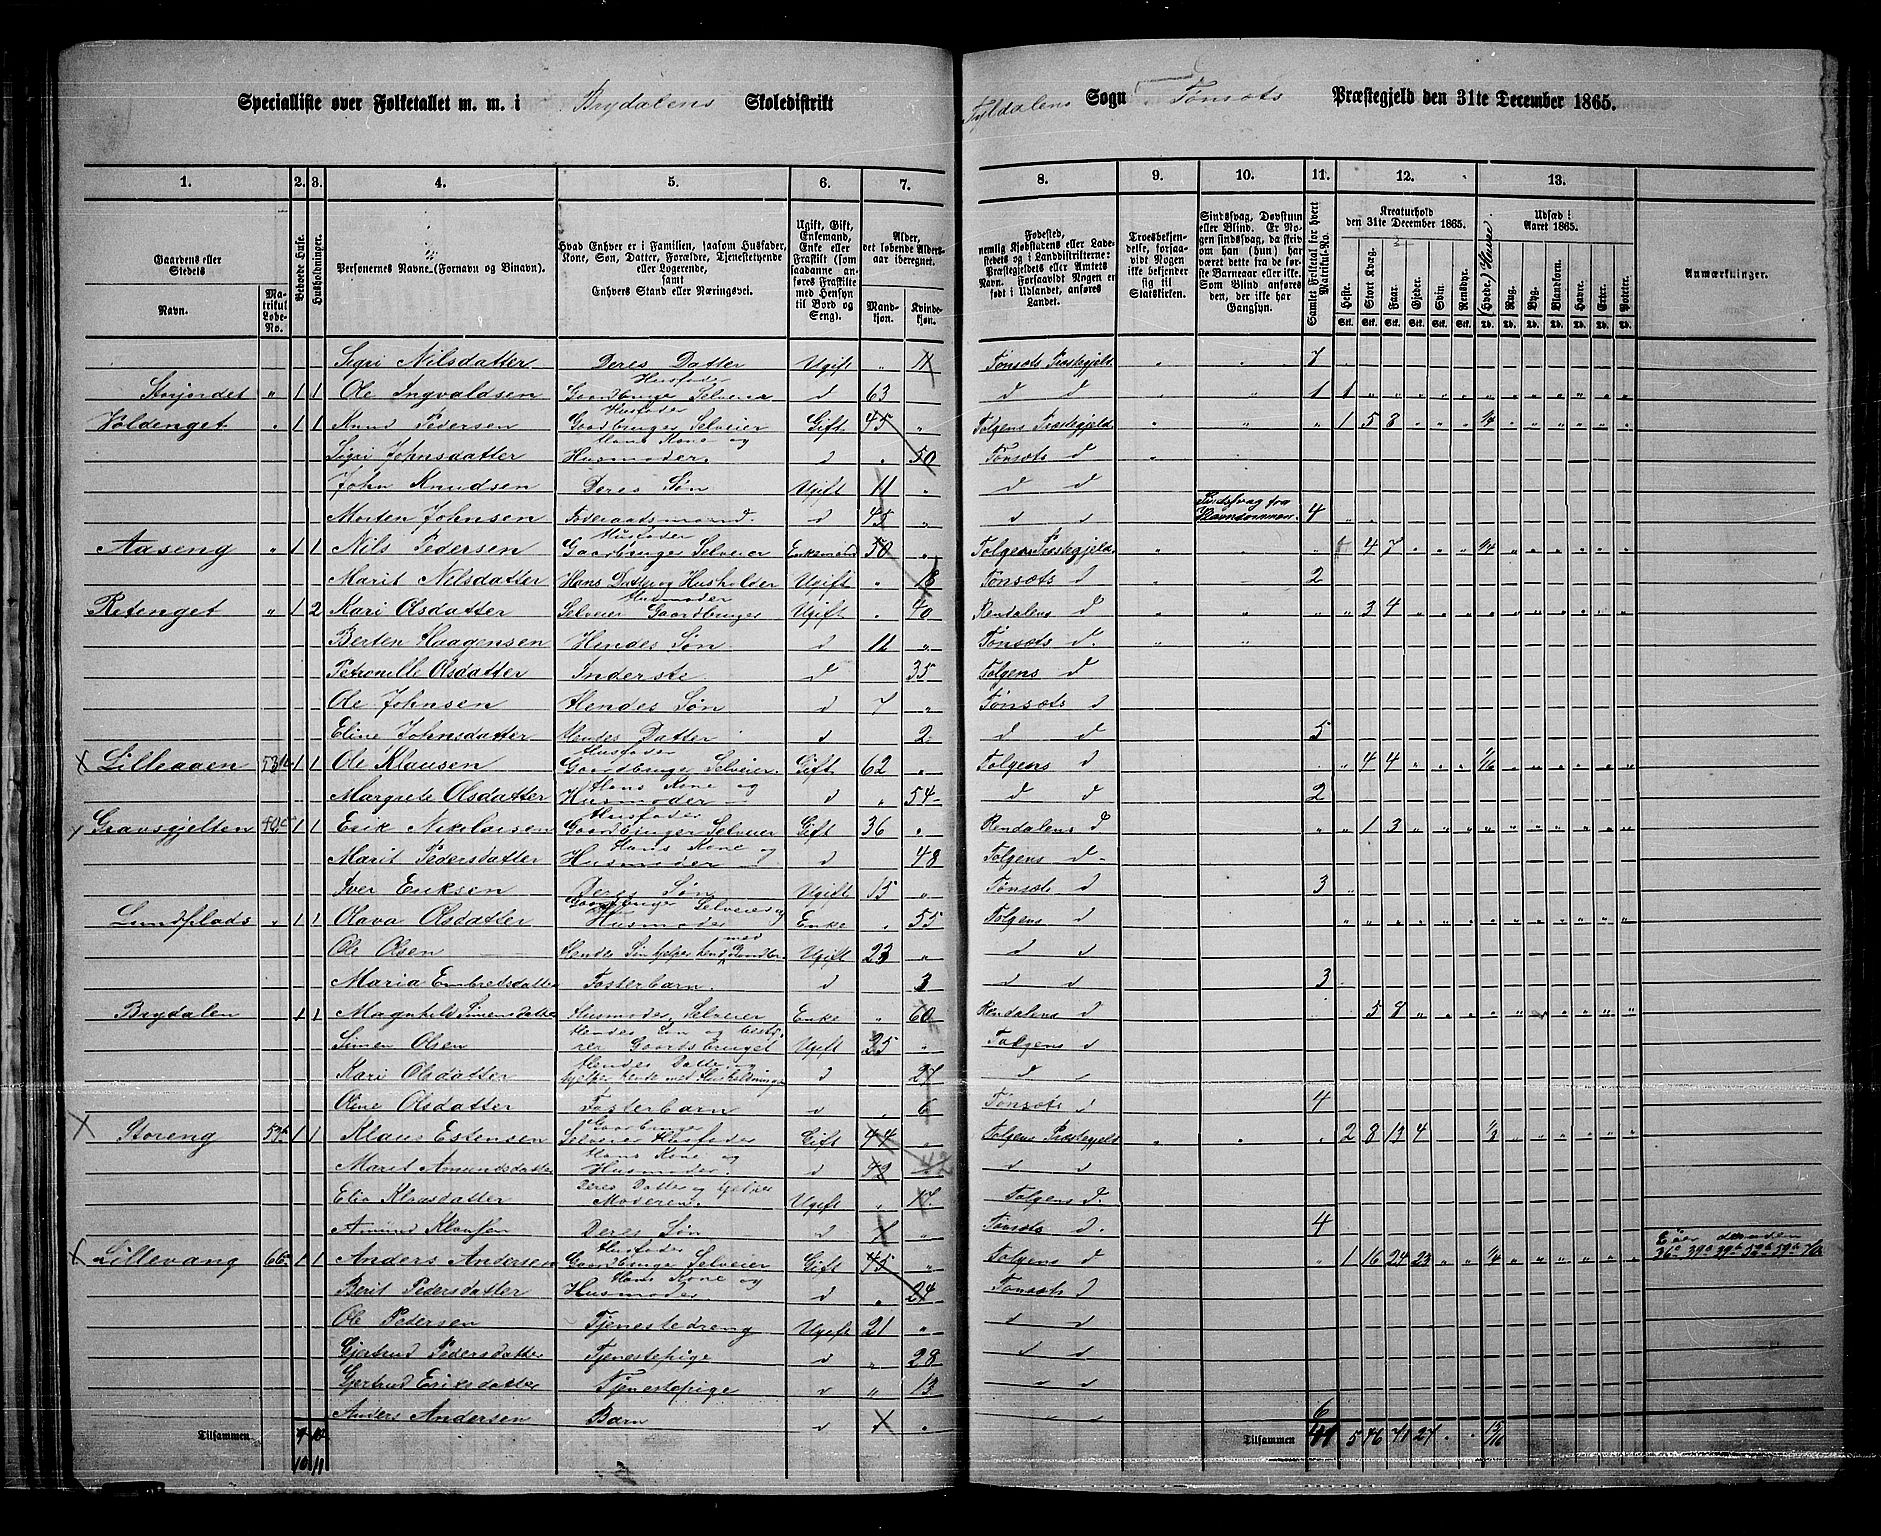 Specialliste over Folketallet m. m. i Brydalens Skoledistrikt
Tyldalens Sogn Tønsæts Præstegjeld den 31te December 1865.
1. 2. 3. 4. 5. 6. 7. 8. 9. 10. 11. 12. 13.
Gaardens eller Stedets
Navn.
Matrikul Løbe-No.
Beboede Huse.
Husholdninger.
Personernes Navne (Fornavn og Binavn).
Hvad Enhver er i Familien, saasom Husfader, Kone, Søn, Datter, Forældre, Tjenestetyende eller Logerende, samt Enhvers Stand eller Næringsvei.
Ugift, Gift, Enkemand, Enke eller Fraskilt (som saadanne anføres Fraskilte med Hensyn til Bord og Seng).
Alder, det løbende Alders-aar iberegnet.
Mandkjøn. Kvindekjøn.
Fødested, nemlig Kjøbstedens eller Ladestedets eller i Landdistrikterne: Præstegjeldets eller Amtets Navn. Forsaavidt Nogen er født i Udlandet, anføres Landet.
Troesbekjendelse, forsaavidt Nogen ikke bekjender sig til Statskirken.
Sindssvag, Døvstum eller Blind. Er Nogen sindssvag, da skrives om han (hun) har været dette fra de første Barneaar eller ikke. Som Blind anføres den, der ikke har Gangsyn.
Samlet Folketal for hvert Matrikul-No.
Kreaturhold den 31te December 1865.
Heste. Stort Kvæg. Faar. Gjeder. Svin. Rensdyr.
Udsæd i Aaret 1865.
Hvede, Rug. Byg. Blandkorn. Havre. Erter. Poteter.
Anmærkninger.
Sigri Nilsdatter Deres Datter Ugift " 11 Tønsæts Præstegjeld " " 7
Storjordet " 1 1 Ole Ingvaldsen Husfader Gaardbruger Selveier d 63 d d 1 1
Voldenget " 1 1 Knud Pedersen Husfader Gaardbruger Selveier Gift 45 " Tolgens Præstegjeld " " " 1 5 8 " " " 1/4
Sigri Johnsdatter Hans Kone og Husmoder. d " 50 Tønsæts d
John Knudsen Deres Søn Ugift 11 " d d
Morten Johnsen Føderaadsmand. d 45 " d d Sindssvag fra Barndommen. 4
Aaseng " 1 1 Nils Pedersen Husfader Gaardbruger Selveier Enkemand 50 " Tolgens Præstegjeld " " " 1 4 7 " " " 1/4
Marit Nilsdatter Hans Datter og Husholder Ugift " 18 Tønsæts d 2
Retenget " 1 2 Kari Olsdatter Husmoder Selveier Gaardbruger Ugift " 40 Rendalens d " " " " 3 4
Berten Haagensen Hendes Søn. d 11 " Tønsæts d.
Petronille Olsdatter Inderste d 35 Tolgens d
Ole Johnsen Hendes Søn d 7 " Tønsæts d
Eline Johnsdatter Hendes Datter d 2 d d 5
Lilleaaen 53 1 1 Ole Klausen Husfader Gaardbruger Selveier. Gift 62 " Tolgens d " 4 4 " " " 1/16
Margrete Olsdatter Hans Kone og Husmoder d " 54 d d 2
Gravsgjelten 1 1 Erik Nikolaisen Husfader Gaardbruger Selveier Gift 36 " Rendalens d " " 1 3
Marit Pedersdatter Hans Kone og Husmoder d 48 Tolgens d
Iver Eriksen Deres Søn Ugift 15 " Tønsæts d 3
Lundplads " 1 1 Olava Olsdatter Gaardbruger Selveier og Husmoder Enke " 55 Tolgens d
Ole Olsen Hendes Søn hjelper hend med Ugift 23 " d d
Maria Embredsdatter Fosterbarn. d 3 d d 3
Brydalen 1 1 Magnhild Simensdatter Husmoder, Selveier Enke " 60 Rendalens d 5 8
Simen Olsen Hendes Søn og bestyrer Gaardsbruget Ugift 35 " Tolgens d
Kari Olsdatter Hendes Datter og hjelper hende med Husholdningen d 27 d d
Oline Olsdatter Fosterbarn d " 6 Tønsæts d 4
Storeng 1 1 Klaus Estensen Gaardbruger Selveier Husfader Gift 44 " Tolgens Præstegjeld " " " 2 8 19 4 " " 1/8
Marit Amundsdatter Hans Kone og Husmoder. d 42 42 d d
Elie Klausdatter Deres Datter og hjelper Moderen. Ugift " 17 Tolgens d.
Amund Klausen Deres Søn d " Tønsæts d. 4
Lillevang 66 1 1 Anders Andersen Husfader Gaardbruger Selveier Gift 45 " Tolgens d " 1 16 24 23 " " 1/4 Eier desuden
Berit Pedersdatter Hans Kone og Husmoder d " 24 Tønsæts d
Ole Pedersen Tjenestedreng Ugift 21 " d d
Gjertrud Pedersdatter Tjenestepige d " 28 d d
Gjertrud Eriksdatter Tjenestepige d " 13 d d
Anders Andersen Barn d " d d 6
Tilsammen 10 11
Tilsammen 41 5 46 71 27 " " 15/16